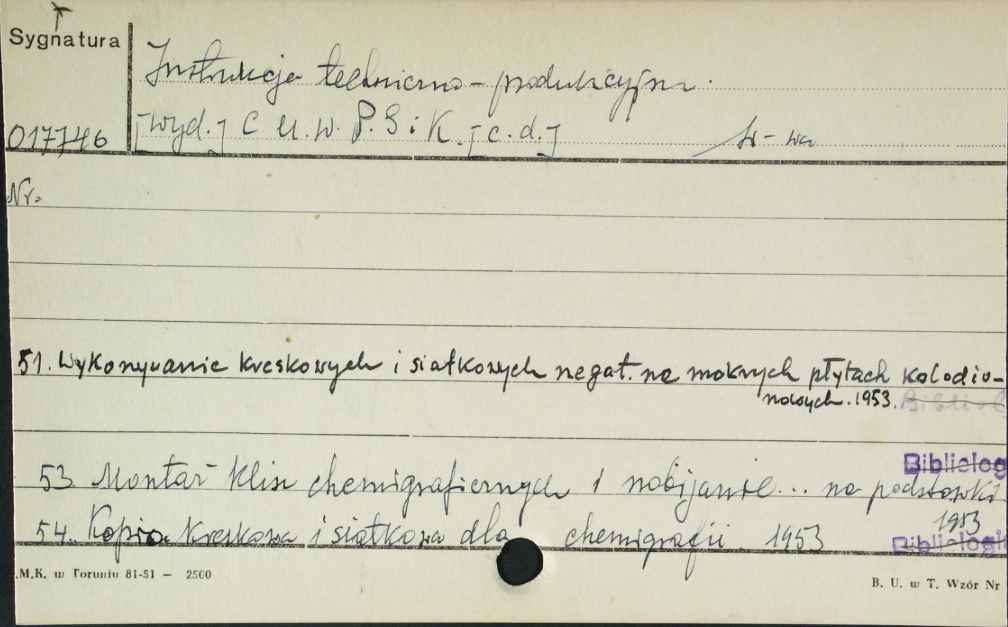 Sygnatura
Instrukcja techniczno-produkcyjna.
017746
[wyd.] C U. W. P. G i K. [c.d.] W-wa
Nr.
51. Wykonywanie kreskowych i siatkowych negat. na mokrych płytach kolodio-
nowych. 1953. Bibliol
53. Montaż klisz chemigraficznych i nabijanie... na podstawki
Bibliolog
1953
54. Kopia kreskowa i siatkowa dla chemigrafii 1953
Bibliologi
.M.K. w Toruniu 81-51 — 2500
B. U. w T. Wzór Nr